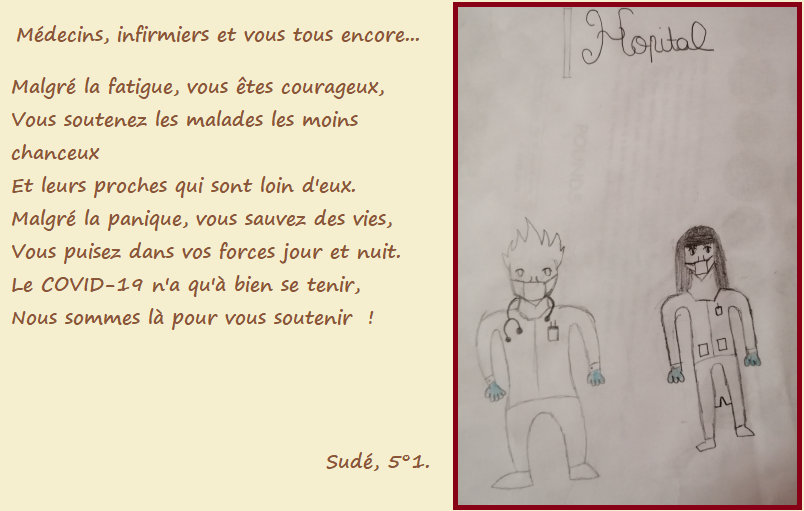 Médecins, infirmiers et vous tous encore...
Malgré la fatigue, vous êtes courageux,
Vous soutenez les malades les moins
chanceux
Et leurs proches qui sont loin d'eux.
Malgré la panique, vous sauvez des vies,
Vous puisez dans vos forces jour et nuit.
Le COVID-19 n'a qu'à bien se tenir,
Nous sommes là pour vous soutenir !
Sudé, 5°1.
Hopital